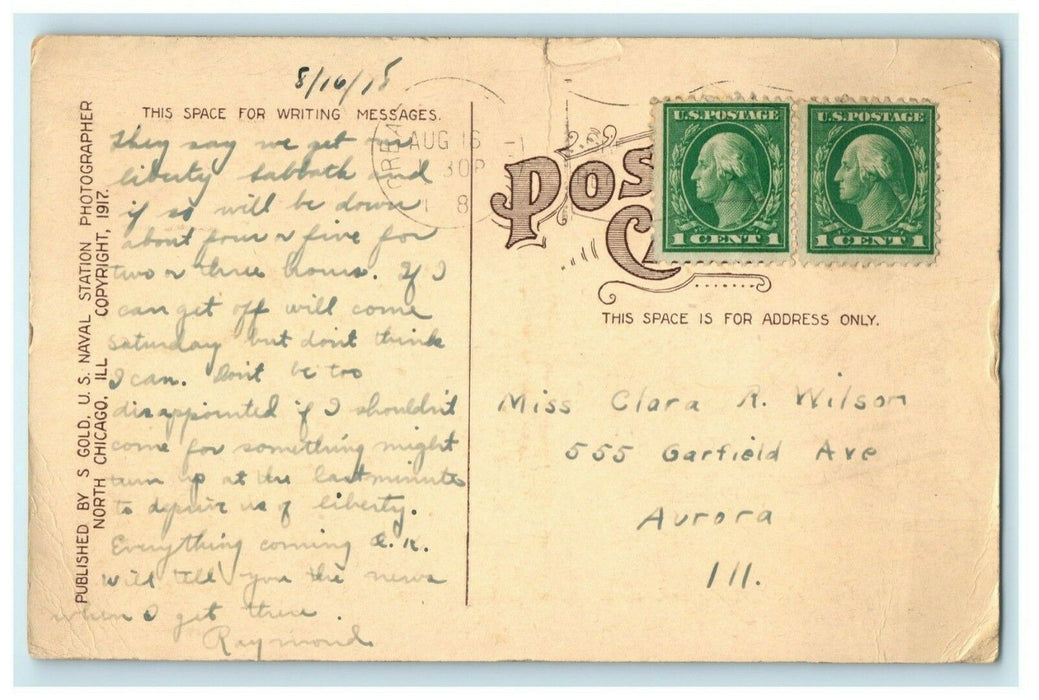 8/16/18
THIS SPACE FOR WRITING MESSAGES.
They say we get our
liberty sabbath and
if so will be down
about four or five for
two or three hours. If I
can get off will come
saturday but don't think
I can. Don't be too
disappointed if I shouldn't
come for something might
turn up at the last minute
to deprive us of liberty.
Everything coming O.K.
Will tell you the news
when I get there.
Raymond
PUBLISHED BY S GOLD, U.S. NAVAL STATION PHOTOGRAPHER
NORTH CHICAGO, ILL COPYRIGHT, 1917.
AUG 16
30P
18
POS
C
U.S. POSTAGE
1 CENT 1
U.S. POSTAGE
1 CENT 1
THIS SPACE IS FOR ADDRESS ONLY.
Miss Clara R. Wilson
555 Garfield Ave
Aurora
Ill.